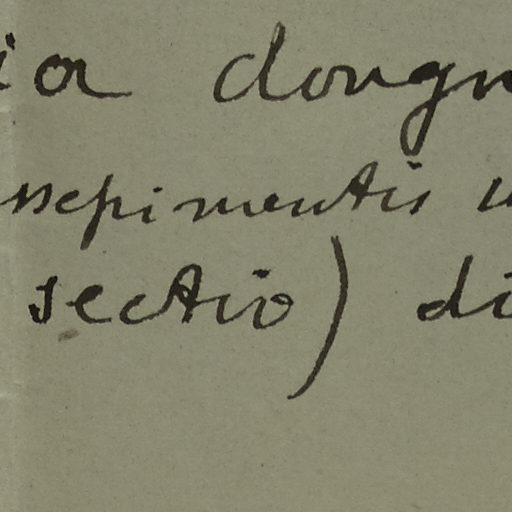 ia dougn
ssepimentis u
sectio) di